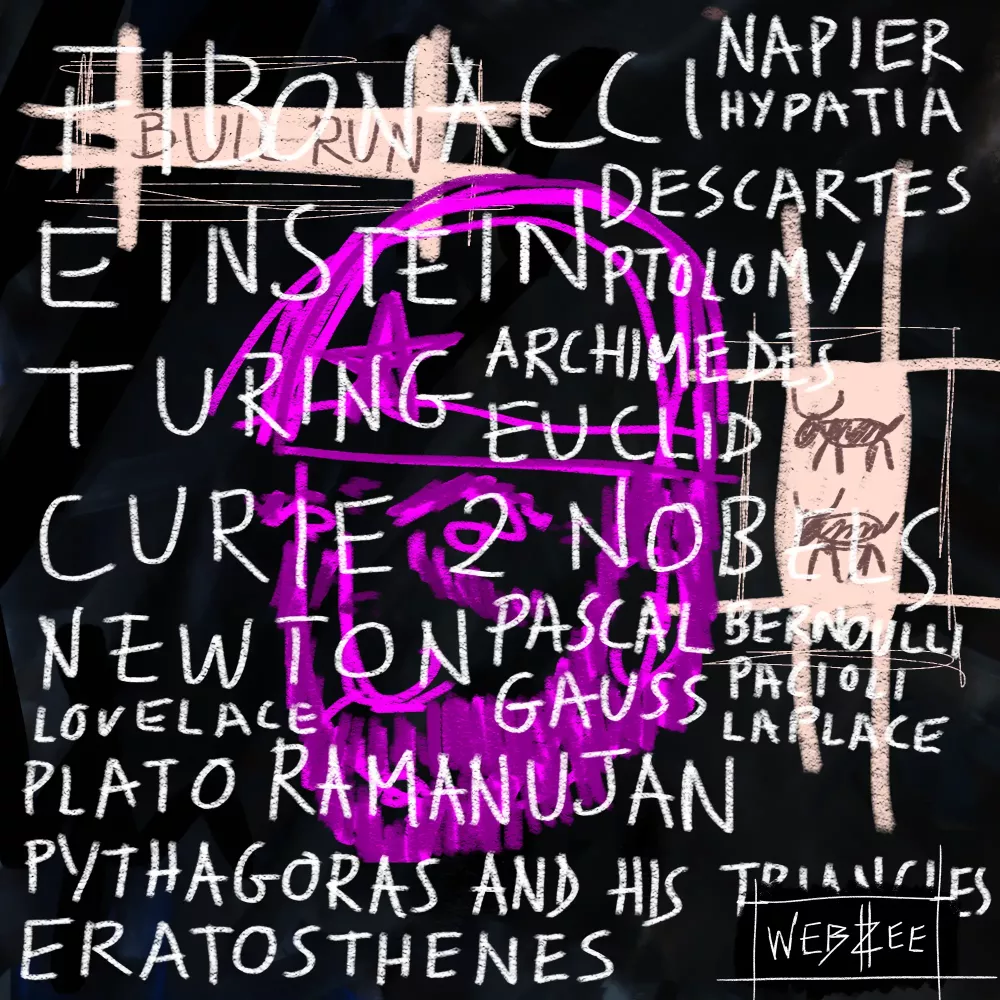 FIBONACCI
NAPIER
HYPATIA
BULL RUN
DESCARTES
EINSTEIN
PTOLOMY
TURING
ARCHIMEDES
EUCLID
CURIE 2 NOBELS
NEWTON
PASCAL
BERNOULLI
GAUSS
PACIOLI
LOVELACE
LAPLACE
PLATO RAMANUJAN
PYTHAGORAS AND HIS TRIANGLES
ERATOSTHENES
WEBZEE